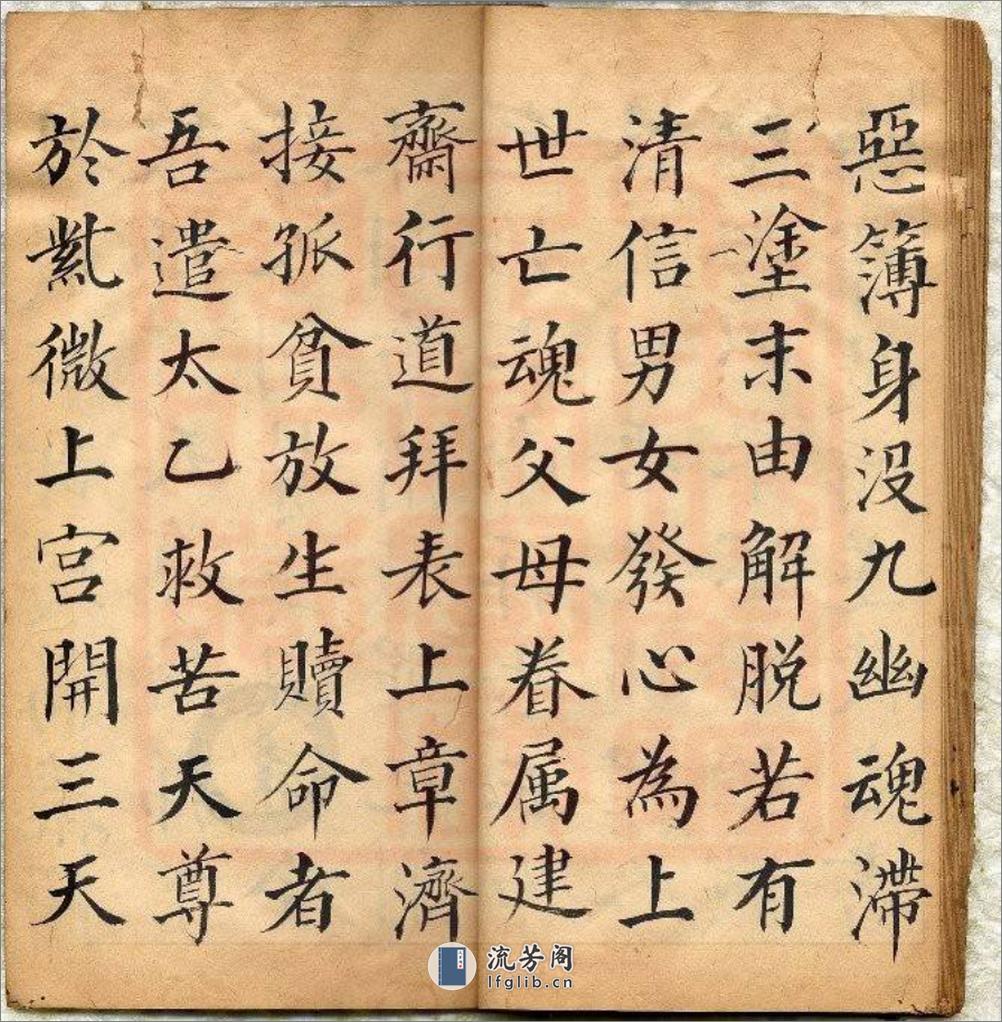 惡簿身没九幽魂滯
三塗末由解脱若有
清信男女發心為上
世亡魂父母眷属建
齋行道拜表上章濟
接孤貧放生贖命者
吾遣太乙救苦天尊
於紫微上宮開三天
流芳阁
lfglib.cn